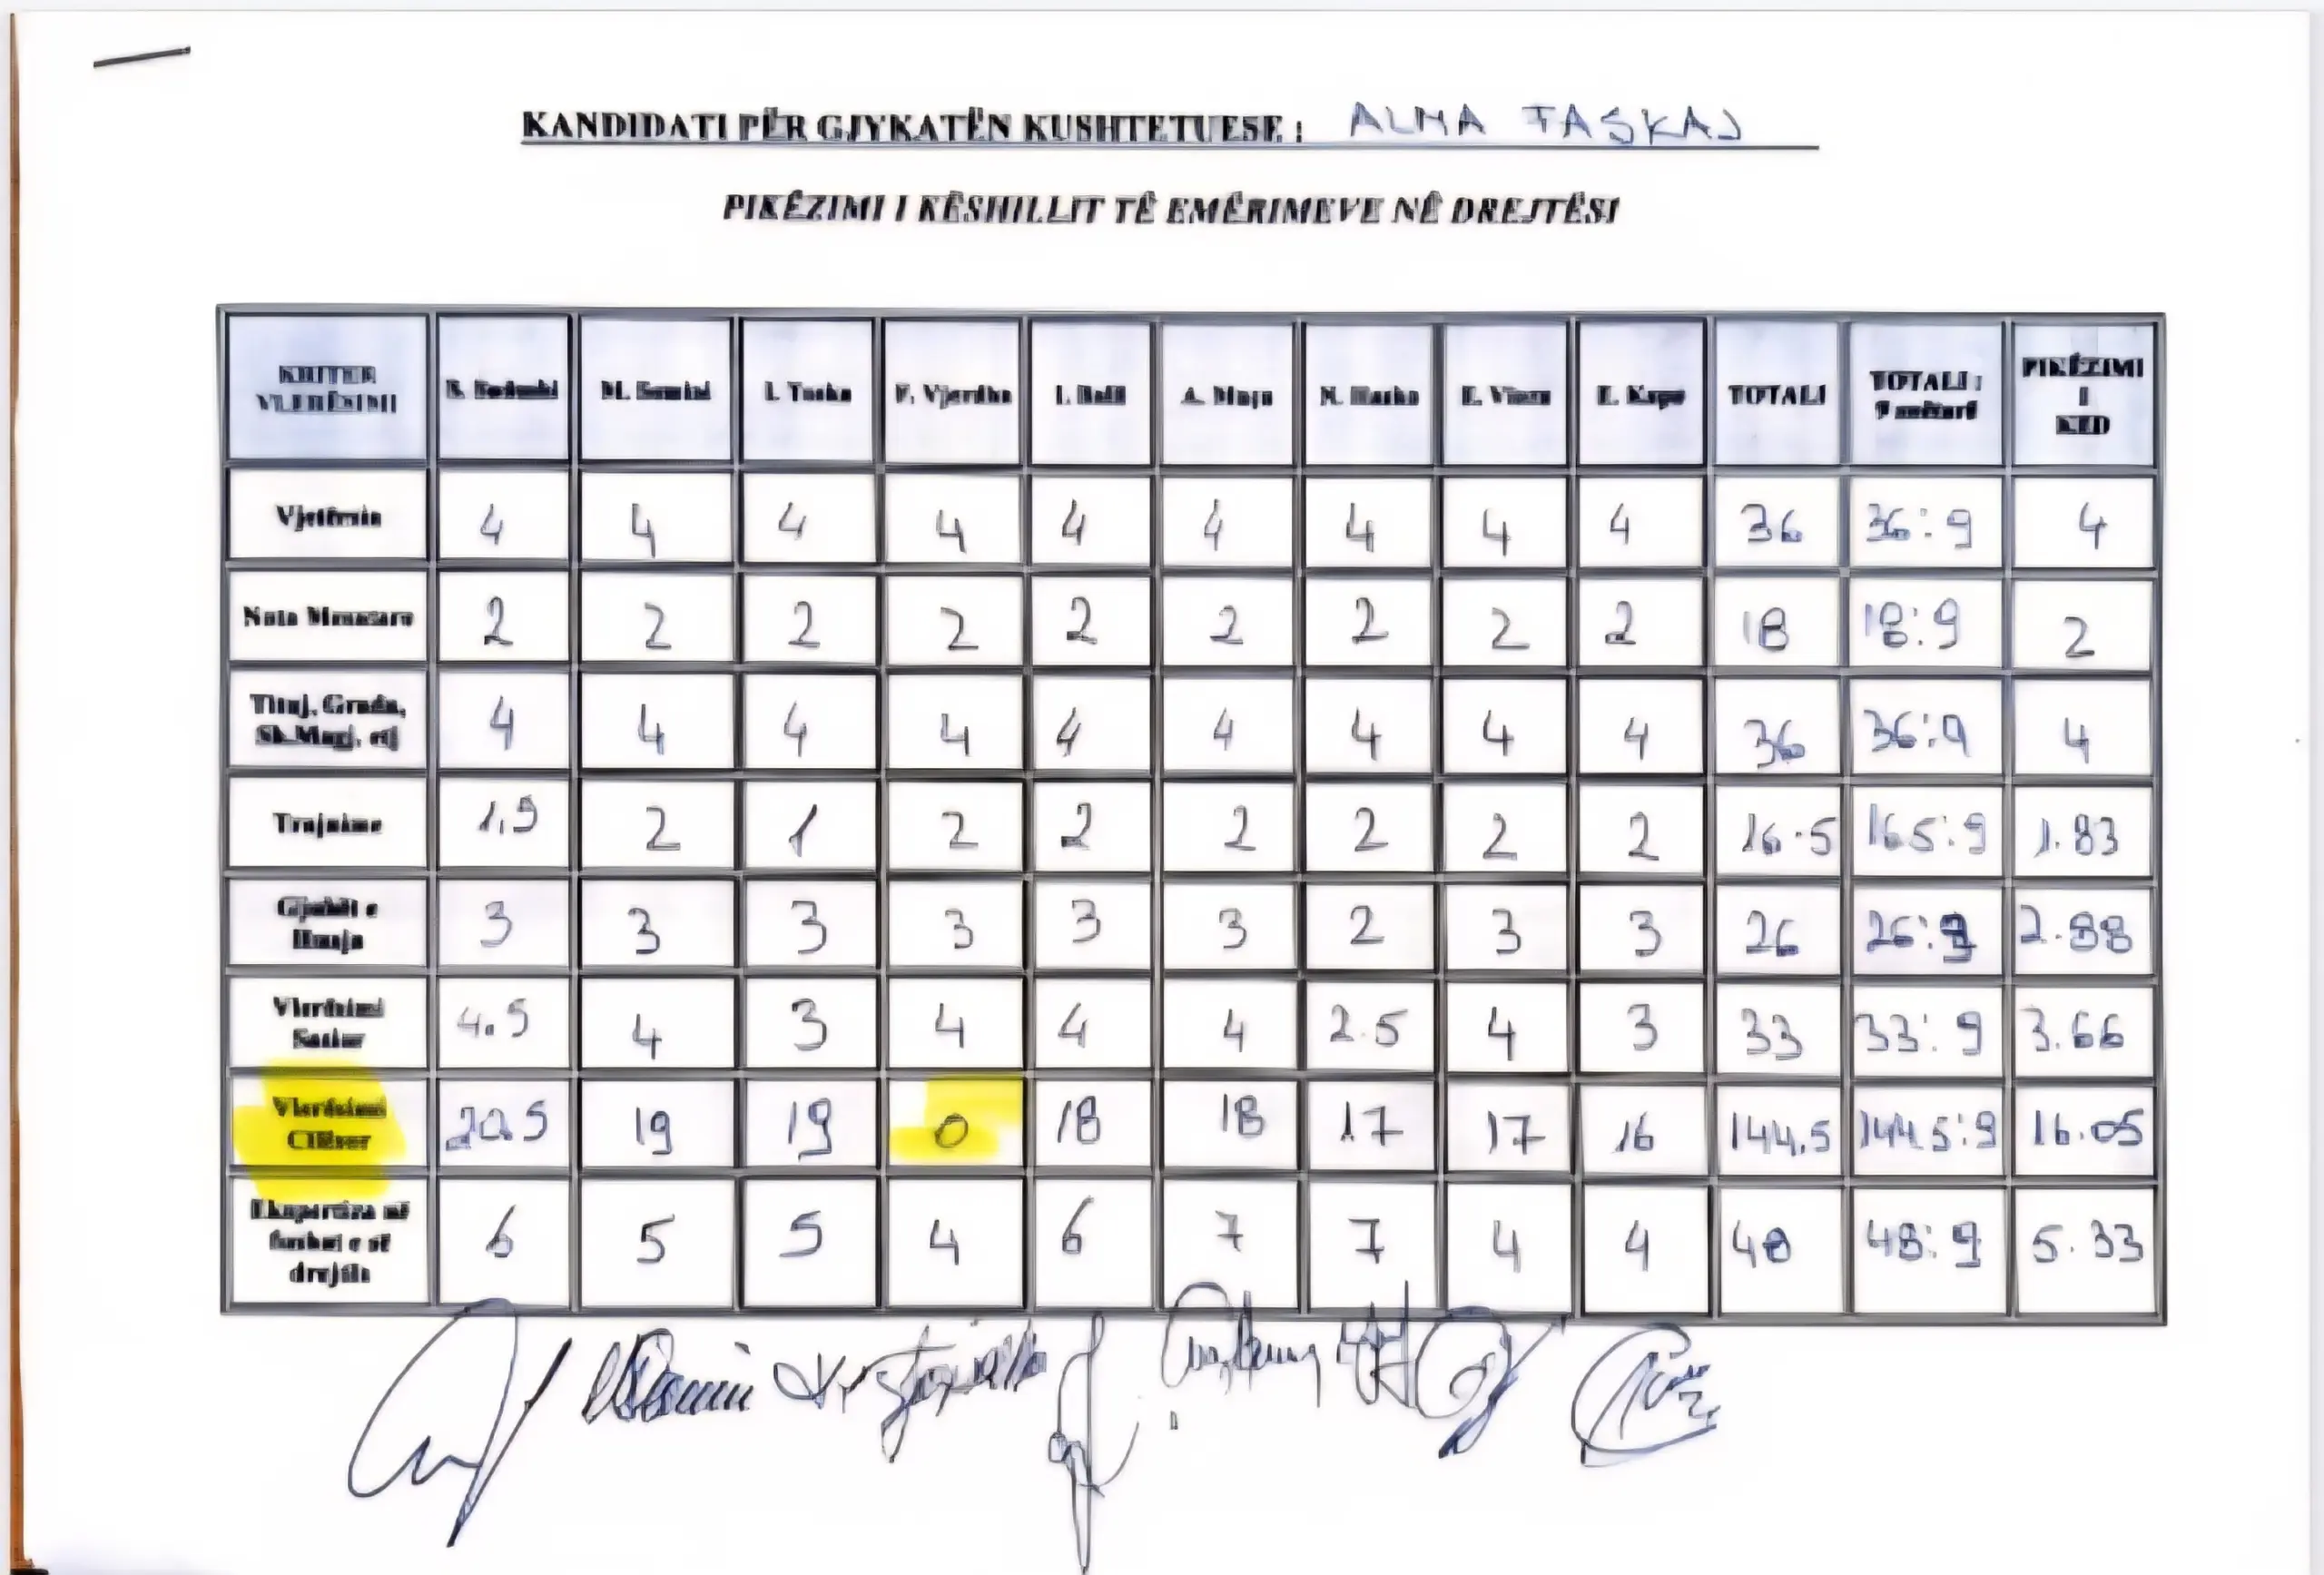 KANDIDATI PËR GJYKATËN KUSHTETUESE : ALMA TASKAJ
PIKËZIMI I KËSHILLIT TË EMËRIMEVE NË DREJTËSI
KRITER VLERËSIMI M. I. F. Vjerdha I. A. N. E. E. TOTALI TOTALI : 9 anëtarë PIKËZIMI I KED
4 4 4 4 4 4 4 4 4 36 36:9 4
Nota Mesatare 2 2 2 2 2 2 2 2 2 18 18:9 2
Tituj, Grada, Sh.Magj. etj 4 4 4 4 4 4 4 4 4 36 36:9 4
Trajnime 1,5 2 1 2 2 2 2 2 2 16.5 16.5:9 1.83
Gjuhët e Huaja 3 3 3 3 3 3 2 3 3 26 26:9 2.88
Vlerësimi 4.5 4 3 4 4 4 2.5 4 3 33 33:9 3.66
Vlerësimi Cilësor 20.5 19 19 0 18 18 17 17 16 144.5 144.5:9 16.05
Ekspertiza në fushat e së drejtës 6 5 5 4 6 7 7 4 4 48 48:9 5.33